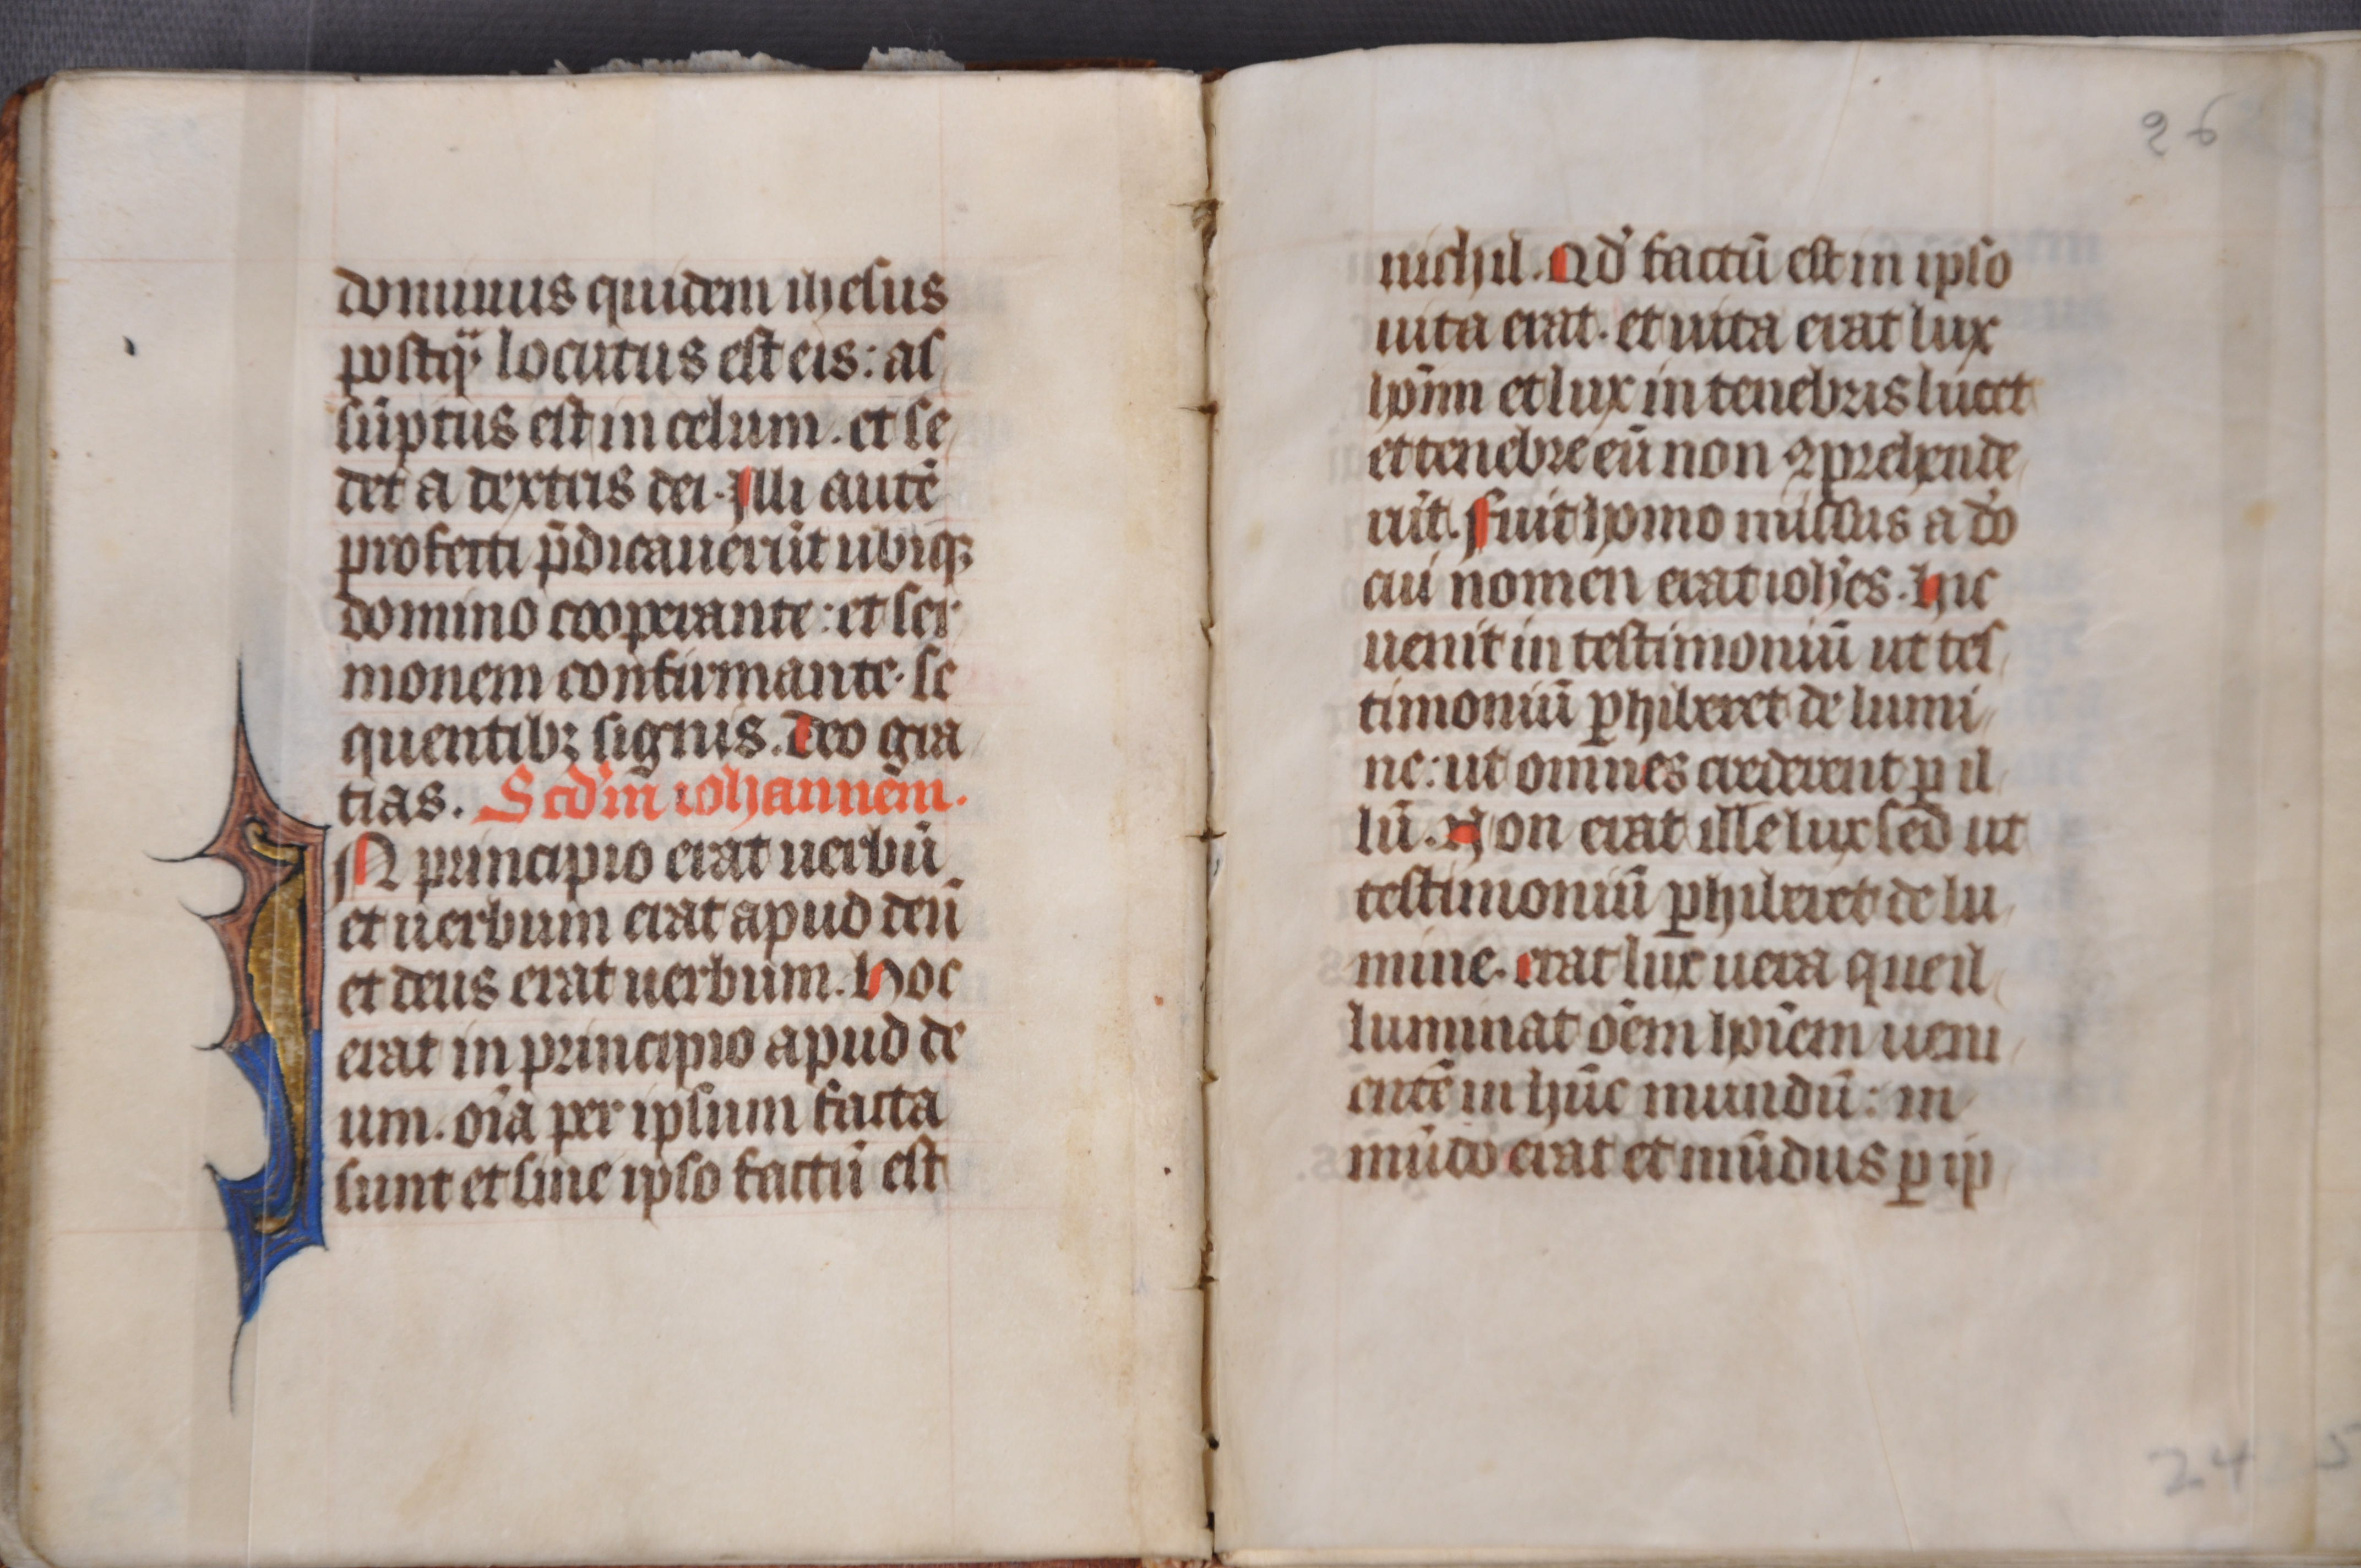 dominus quidem ihesus
postqͣ locutus est eis: as
sūptus est in celum. et se
det a dextris dei. Illi autē
profecti p̄dicauerūt ubiqꝫ
domino cooperante: et ser
monem confirmante. se
quentibꝫ signis. Deo gra
tias. Scd'm̄ iohannem̄.
IN principio erat uerbū
et uerbum erat apud deū
et deus erat uerbum. Hoc
erat in principio apud de
um. oīa per ipsum facta
sunt et sine ipso factū est
26
nichil. Qd' factū est in ipso
uita erat. et uita erat lux
hoīm et lux in tenebris lucet
et tenebre eū non ꝯprehende
rūt. Fuit homo missus a d'o
cui nomen erat ioh'es. Hic
uenit in testimoniū ut tes
timoniū ꝑhiberet de lumi
ne: ut omnes crederent ꝑ il
lū. Non erat ille lux sed ut
testimoniū ꝑhiberet de lu
mine. erat lux uera que il
luminat oēm hoīem ueni
entē in hūc mundū: in
mūdo erat et mūdus ꝑ ip
24
5